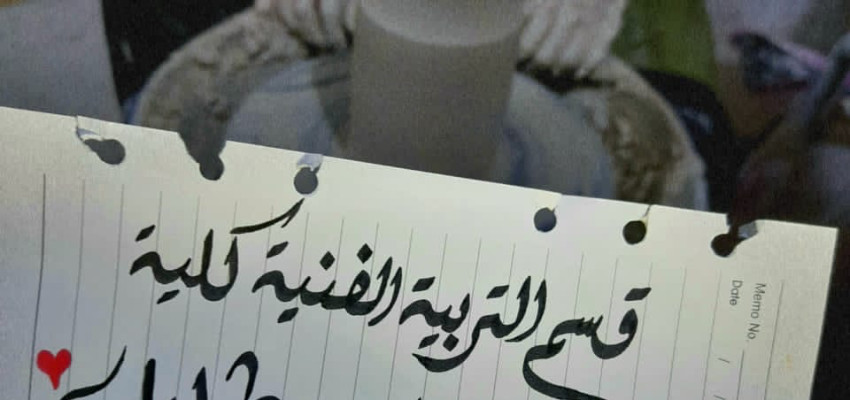 قسم التربية الفنية كلية
Memo No.
Date / /